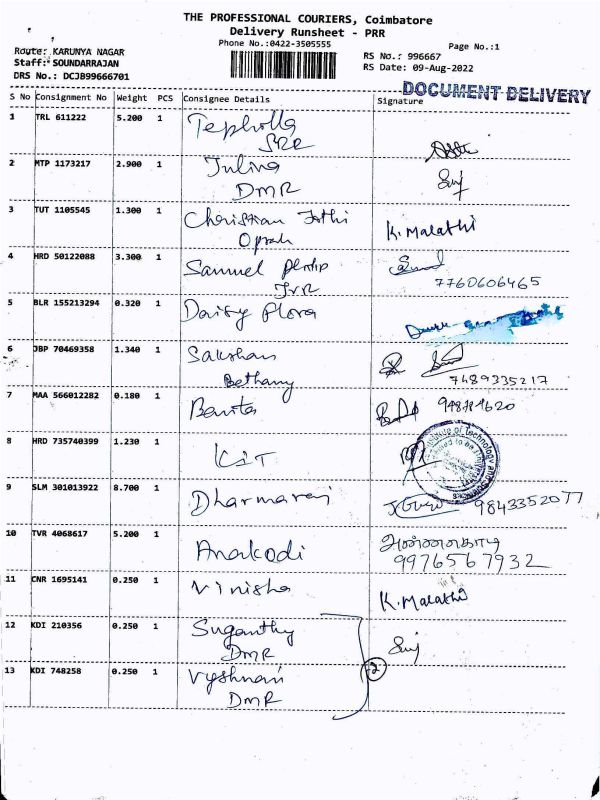 THE PROFESSIONAL COURIERS, Coimbatore
Delivery Runsheet - PRR
Phone No.:0422-3505555
Page No.:1
Route: KARUNYA NAGAR
Staff: SOUNDARRAJAN
DRS No.: DCJB99666701
RS No.: 996667
RS Date: 09-Aug-2022
DOCUMENT DELIVERY
S No Consignment No Weight PCS Consignee Details Signature
1 TRL 611222 5.200 1
2 MTP 1173217 2.900 1 Julina
DMR
3 TUT 1105545 1.300 1 Christian Jothi K. Malathi
4 HRD 50122088 3.300 1 Samuel
JVR 7760606465
5 BLR 155213294 0.320 1 Daisy Flora
6 JBP 70469358 1.340 1 Sakshan
Bethany 7489335217
7 MAA 566012282 0.180 1 Banita
8 HRD 735740399 1.230 1 KIT
itute of Technology and
9 SLM 301013922 8.700 1 Dharmaraj 9843352077
10 TVR 4068617 5.200 1 Anakodi அன்னகொடி
9976567932
11 CNR 1695141 0.250 1 Vinisha K. Malathi
12 KDI 210356 0.250 1 Suganthy
DMR
13 KDI 748258 0.250 1 Vyshnavi 2
DMR